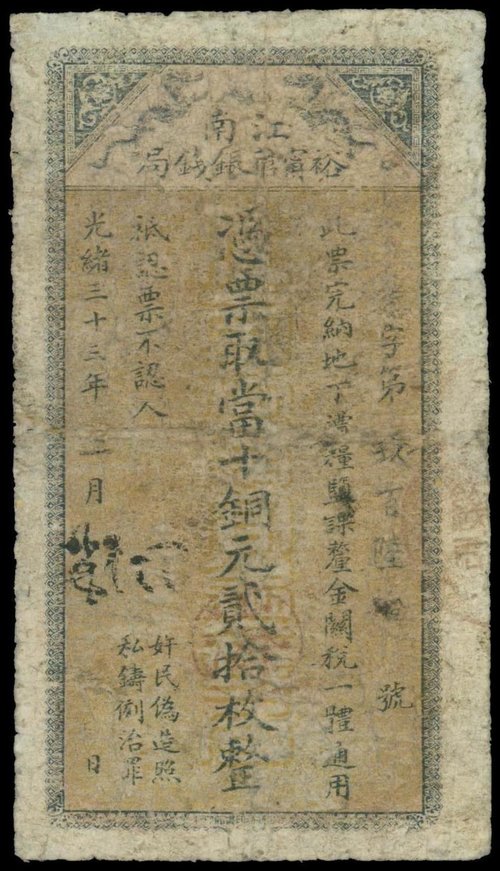 江南
裕寧官銀錢局
字第玖百陸拾號
此票完納地丁漕糧鹽課釐金關稅一體通用
憑票取當十銅元貳拾枚整
祇認票不認人
奸民偽造照
私鑄例治罪
光緒三十三年三月 日